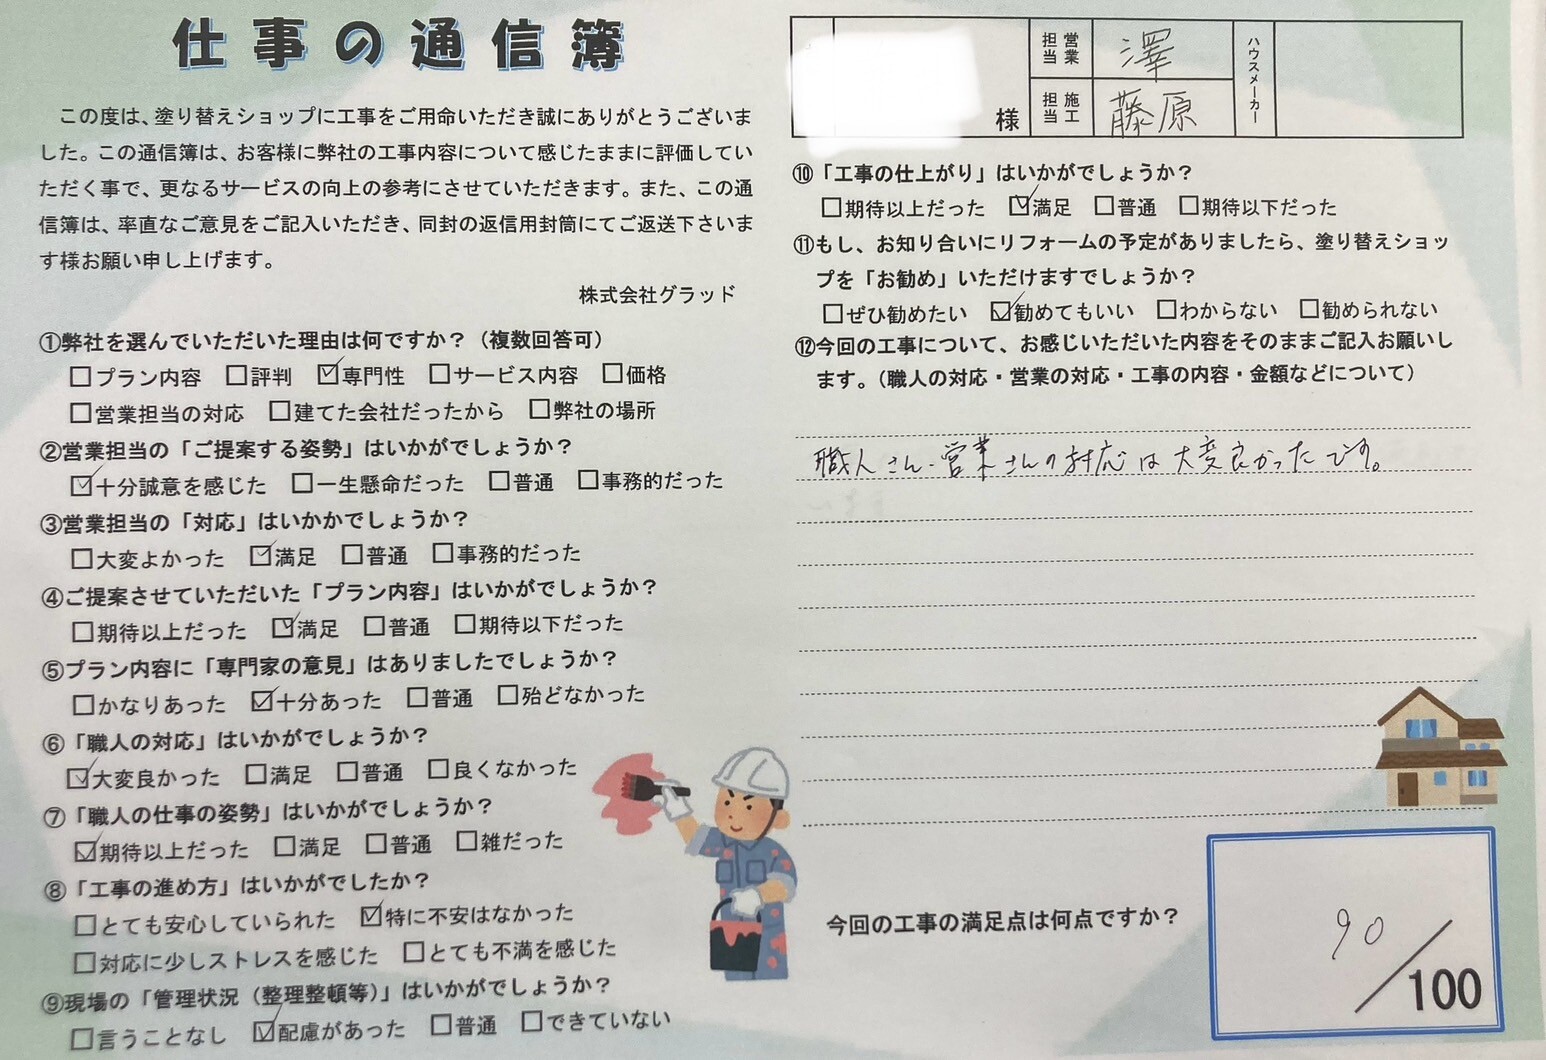 仕事の通信簿
この度は、塗り替えショップに工事をご用命いただき誠にありがとうございま
した。この通信簿は、お客様に弊社の工事内容について感じたままに評価してい
ただく事で、更なるサービスの向上の参考にさせていただきます。また、この通
信簿は、率直なご意見をご記入いただき、同封の返信用封筒にてご返送下さいま
す様お願い申し上げます。
株式会社グラッド
①弊社を選んでいただいた理由は何ですか？（複数回答可）
□プラン内容 □評判 ☑専門性 □サービス内容 □価格
□営業担当の対応 □建てた会社だったから □弊社の場所
②営業担当の「ご提案する姿勢」はいかがでしょうか？
☑十分誠意を感じた □一生懸命だった □普通 □事務的だった
③営業担当の「対応」はいかかでしょうか？
□大変よかった ☑満足 □普通 □事務的だった
④ご提案させていただいた「プラン内容」はいかがでしょうか？
□期待以上だった ☑満足 □普通 □期待以下だった
⑤プラン内容に「専門家の意見」はありましたでしょうか？
□かなりあった ☑十分あった □普通 □殆どなかった
⑥「職人の対応」はいかがでしょうか？
☑大変良かった □満足 □普通 □良くなかった
⑦「職人の仕事の姿勢」はいかがでしょうか？
☑期待以上だった □満足 □普通 □雑だった
⑧「工事の進め方」はいかがでしたか？
□とても安心していられた ☑特に不安はなかった
□対応に少しストレスを感じた □とても不満を感じた
⑨現場の「管理状況（整理整頓等）」はいかがでしょうか？
□言うことなし ☑配慮があった □普通 □できていない
様
営業担当 澤
施工担当 藤原
ハウスメーカー
⑩「工事の仕上がり」はいかがでしょうか？
□期待以上だった ☑満足 □普通 □期待以下だった
⑪もし、お知り合いにリフォームの予定がありましたら、塗り替えショッ
プを「お勧め」いただけますでしょうか？
□ぜひ勧めたい ☑勧めてもいい □わからない □勧められない
⑫今回の工事について、お感じいただいた内容をそのままご記入お願いし
ます。（職人の対応・営業の対応・工事の内容・金額などについて）
職人さん・営業さんの対応は大変良かったです。
今回の工事の満足点は何点ですか？
90/100